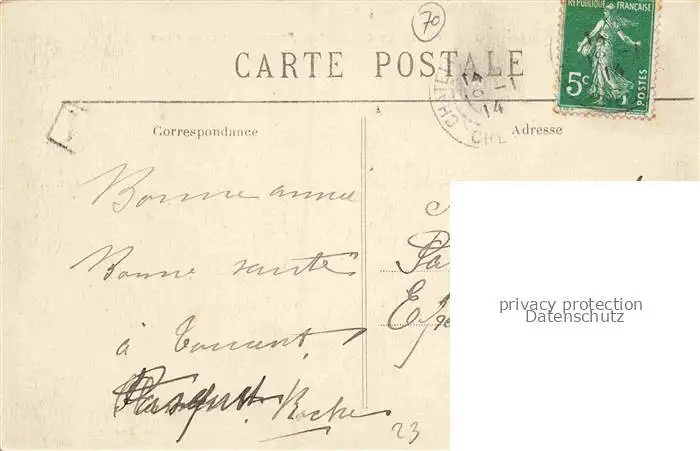 70
RÉPUBLIQUE FRANÇAISE
5c
POSTES
CARTE POSTALE
14 -1
14
Correspondance
Adresse
Bonne année
Bonne santé
à
Roche
23
privacy protection
Datenschutz